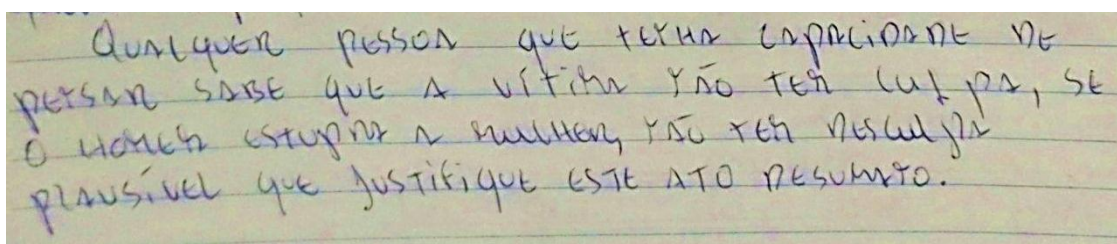 Qualquer pessoa que tenha capacidade de
pensar sabe que a vítima não tem culpa, se
o homem estupra a mulher, não tem desculpa
plausível que justifique este ato desumano.